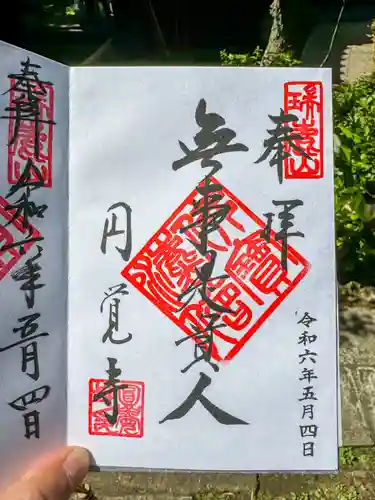 奉拝
瑞鹿山
無事是貴人
円覚寺
令和六年五月四日
奉拝
令和六年五月四日